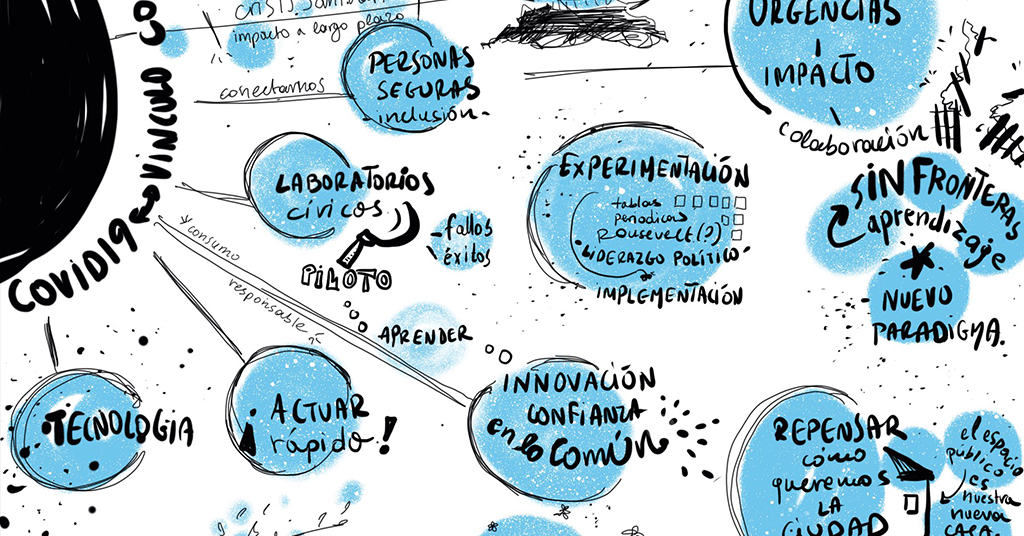 impacto a largo plazo
conectamos
PERSONAS
SEGURAS
- inclusión -
URGENCIAS
IMPACTO
colaboración
COVID19 ↔ VINCULO CO
LABORATORIOS
cívicos
PILOTO
fallos
éxitos
APRENDER
EXPERIMENTACIÓN
tablas
periodicos
Rousevelt(?)
LIDERAZGO POLÍTICO
IMPLEMENTACIÓN
SIN FRONTERAS
aprendizaje
NUEVO
PARADIGMA.
consumo
responsable
TECNOLOGIA
ACTUAR
rápido!
INNOVACIÓN
CONFIANZA
en lo COMÚN
REPENSAR
cómo
queremos
LA
CIUDAD
el espacio
público
es
nuestra
nueva
CASA